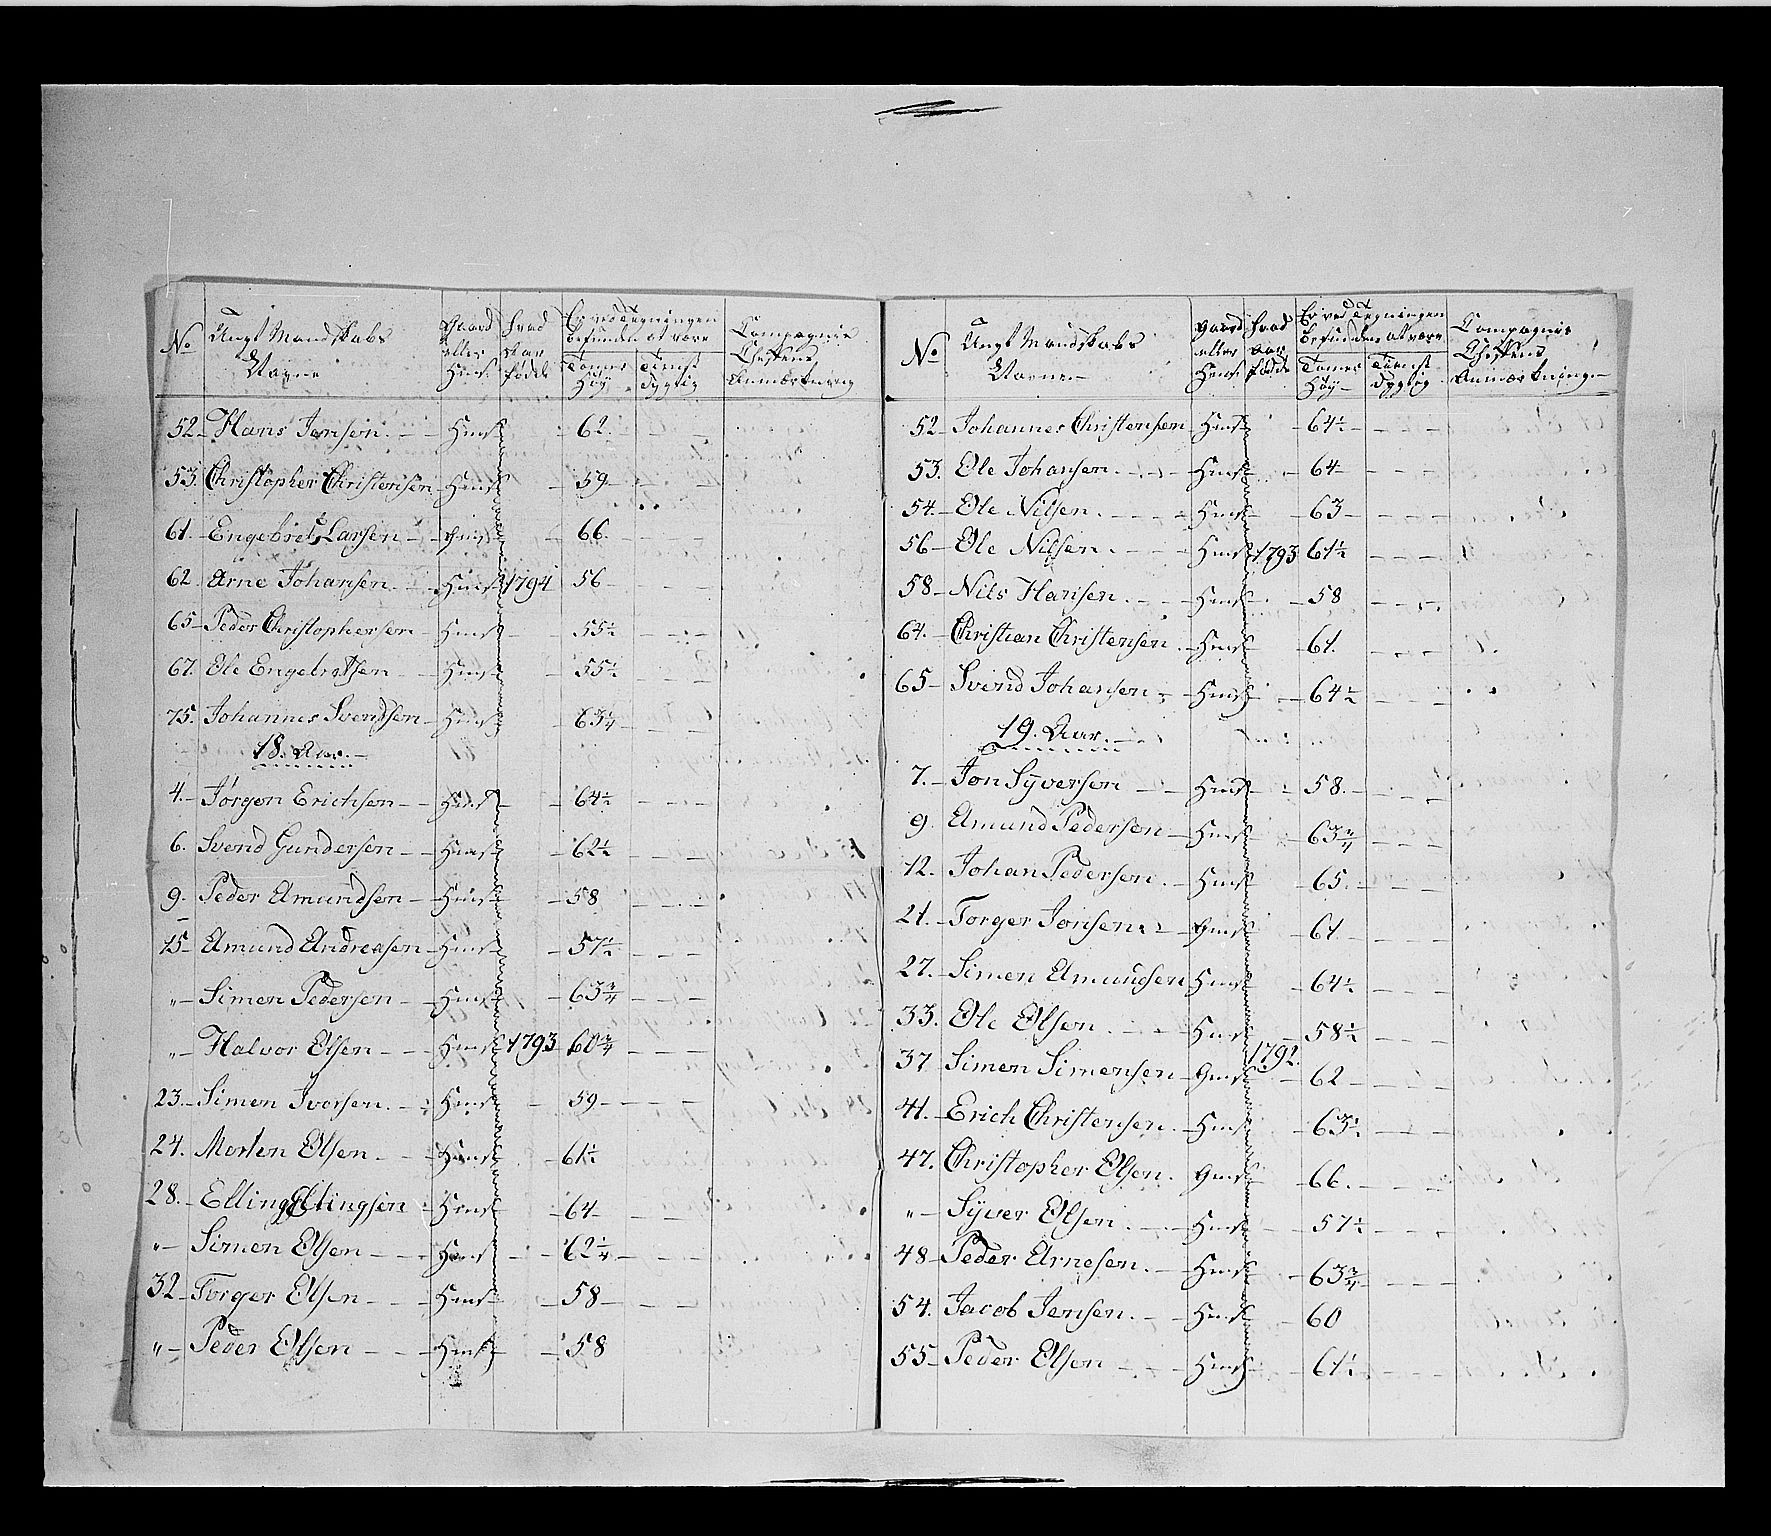 No Ungt Mandskabs Navne Gaard eller Huus Hvad Aar fødde Er ved Tegningen befunden at være Tomer Høy Tienst dygtig Compagnie Cheffens Anmærkning
52 Hans Jensen Huus 62
53 Christopher Christensen Huus 59
61. Engebret Larsen Huus 66
62 Arne Johansen Huus 1794 56
65 Peder Christophersen Huus 55½
67. Ole Engebretsen Huus 55½
75. Johannes Svendsen Huus 63¼
18. Aar.
4. Jørgen Erichsen Huus 64½
6. Svend Gundersen Huus 62½
9. Peder Amundsen Huus 58
15 Amund Andreasen Huus 57½
" Simen Pedersen Huus 63¾
" Halvor Olsen Huus 1793 60¾
23. Simen Iversen Huus 59
24. Morten Olsen Huus 61½
28. Elling Ellingsen Huus 64
" Simen Olsen Huus 62¼
32 Torger Olsen Huus 58
" Peder Olsen Huus 58
No Ungt Mandskabs Navne Gaard eller Huus Hvad Aar fødde Er ved Tegningen befunden at være Tomer Høy Tienst dygtig Compagnie Cheffens Anmærkning
52 Johannes Christensen Huus 64½
53. Ole Johansen Huus 64
54. Ole Nilsen Huus 63
56 Ole Nilsen Huus 1793 61½
58 Nils Hansen Huus 58
64. Christian Christensen Huus 61
65 Svend Johansen Huus 64½
19. Aar.
7. Jon Syversen Huus 58
9. Amund Pedersen Huus 63¾
12. Johan Pedersen Huus 65
21. Torger Jonsen Huus 61
27. Simen Amundsen Huus 64½
33. Ole Olsen Huus 58½
37 Simen Simensen Huus 1792. 62
41. Erich Christensen Huus 63½
47. Christopher Olsen Huus 66
" Syver Olsen Huus 57½
48 Peder Arnesen Huus 63¾
54. Jacob Jensen Huus 60
55 Peder Olsen Huus 61½